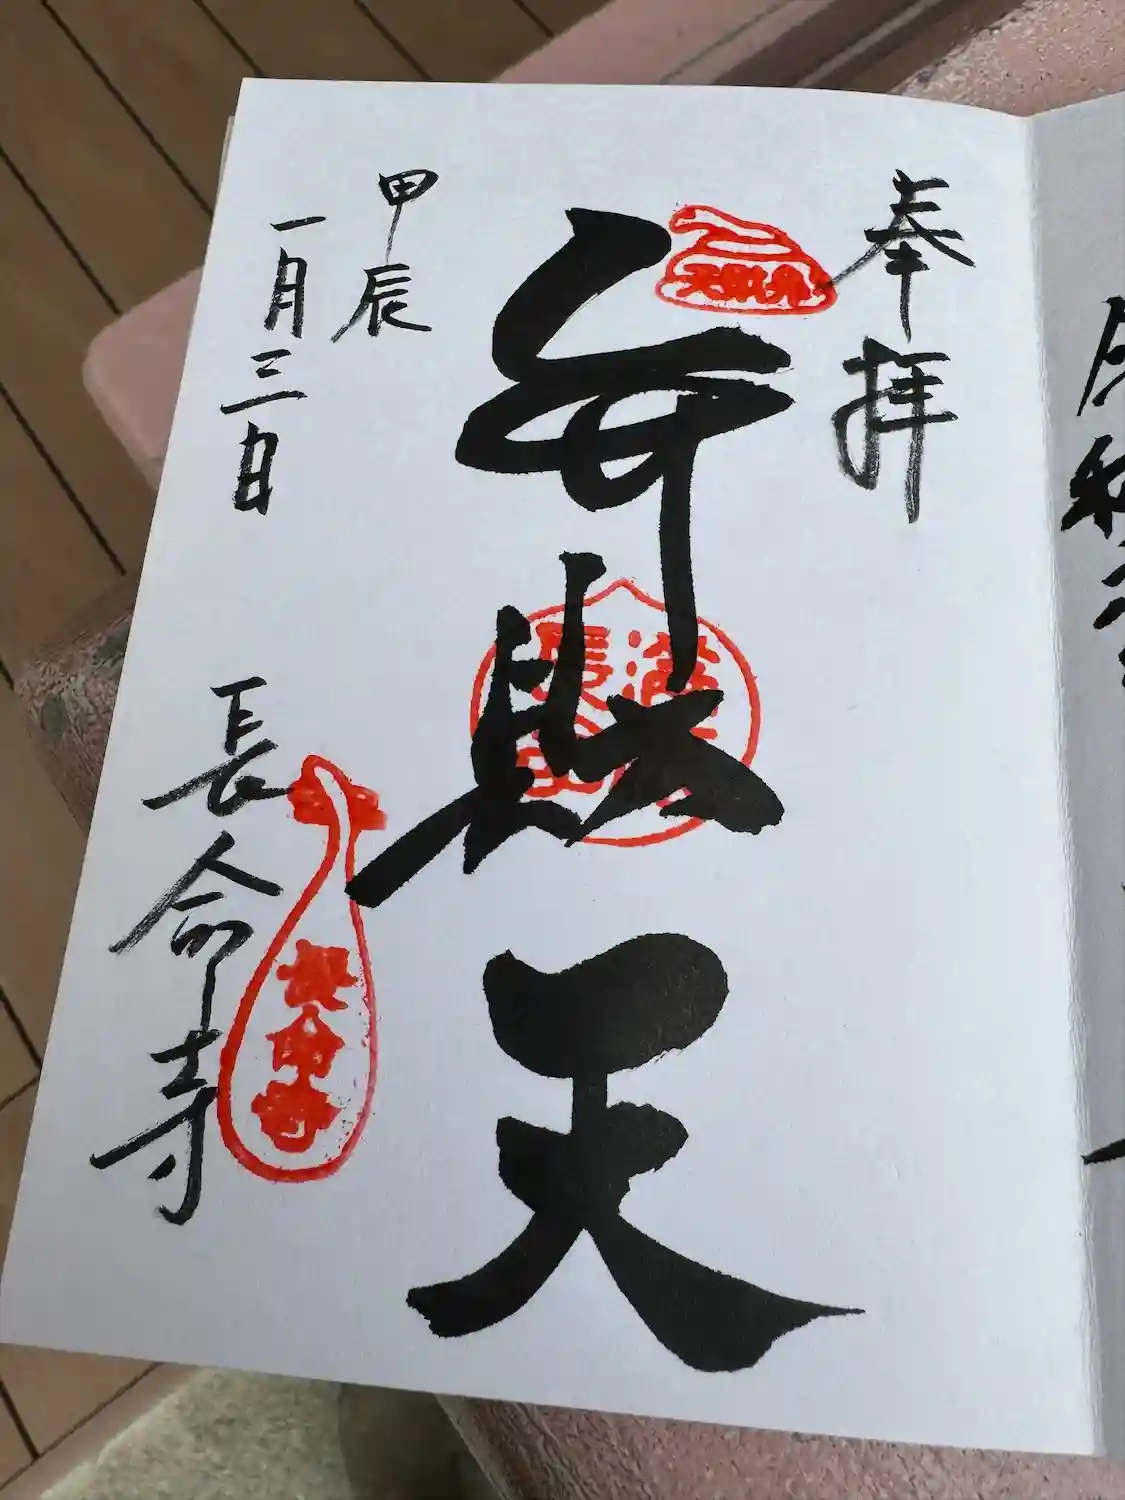 奉拝
弁財天
弁財天
甲辰
一月三日
長命寺
長命寺